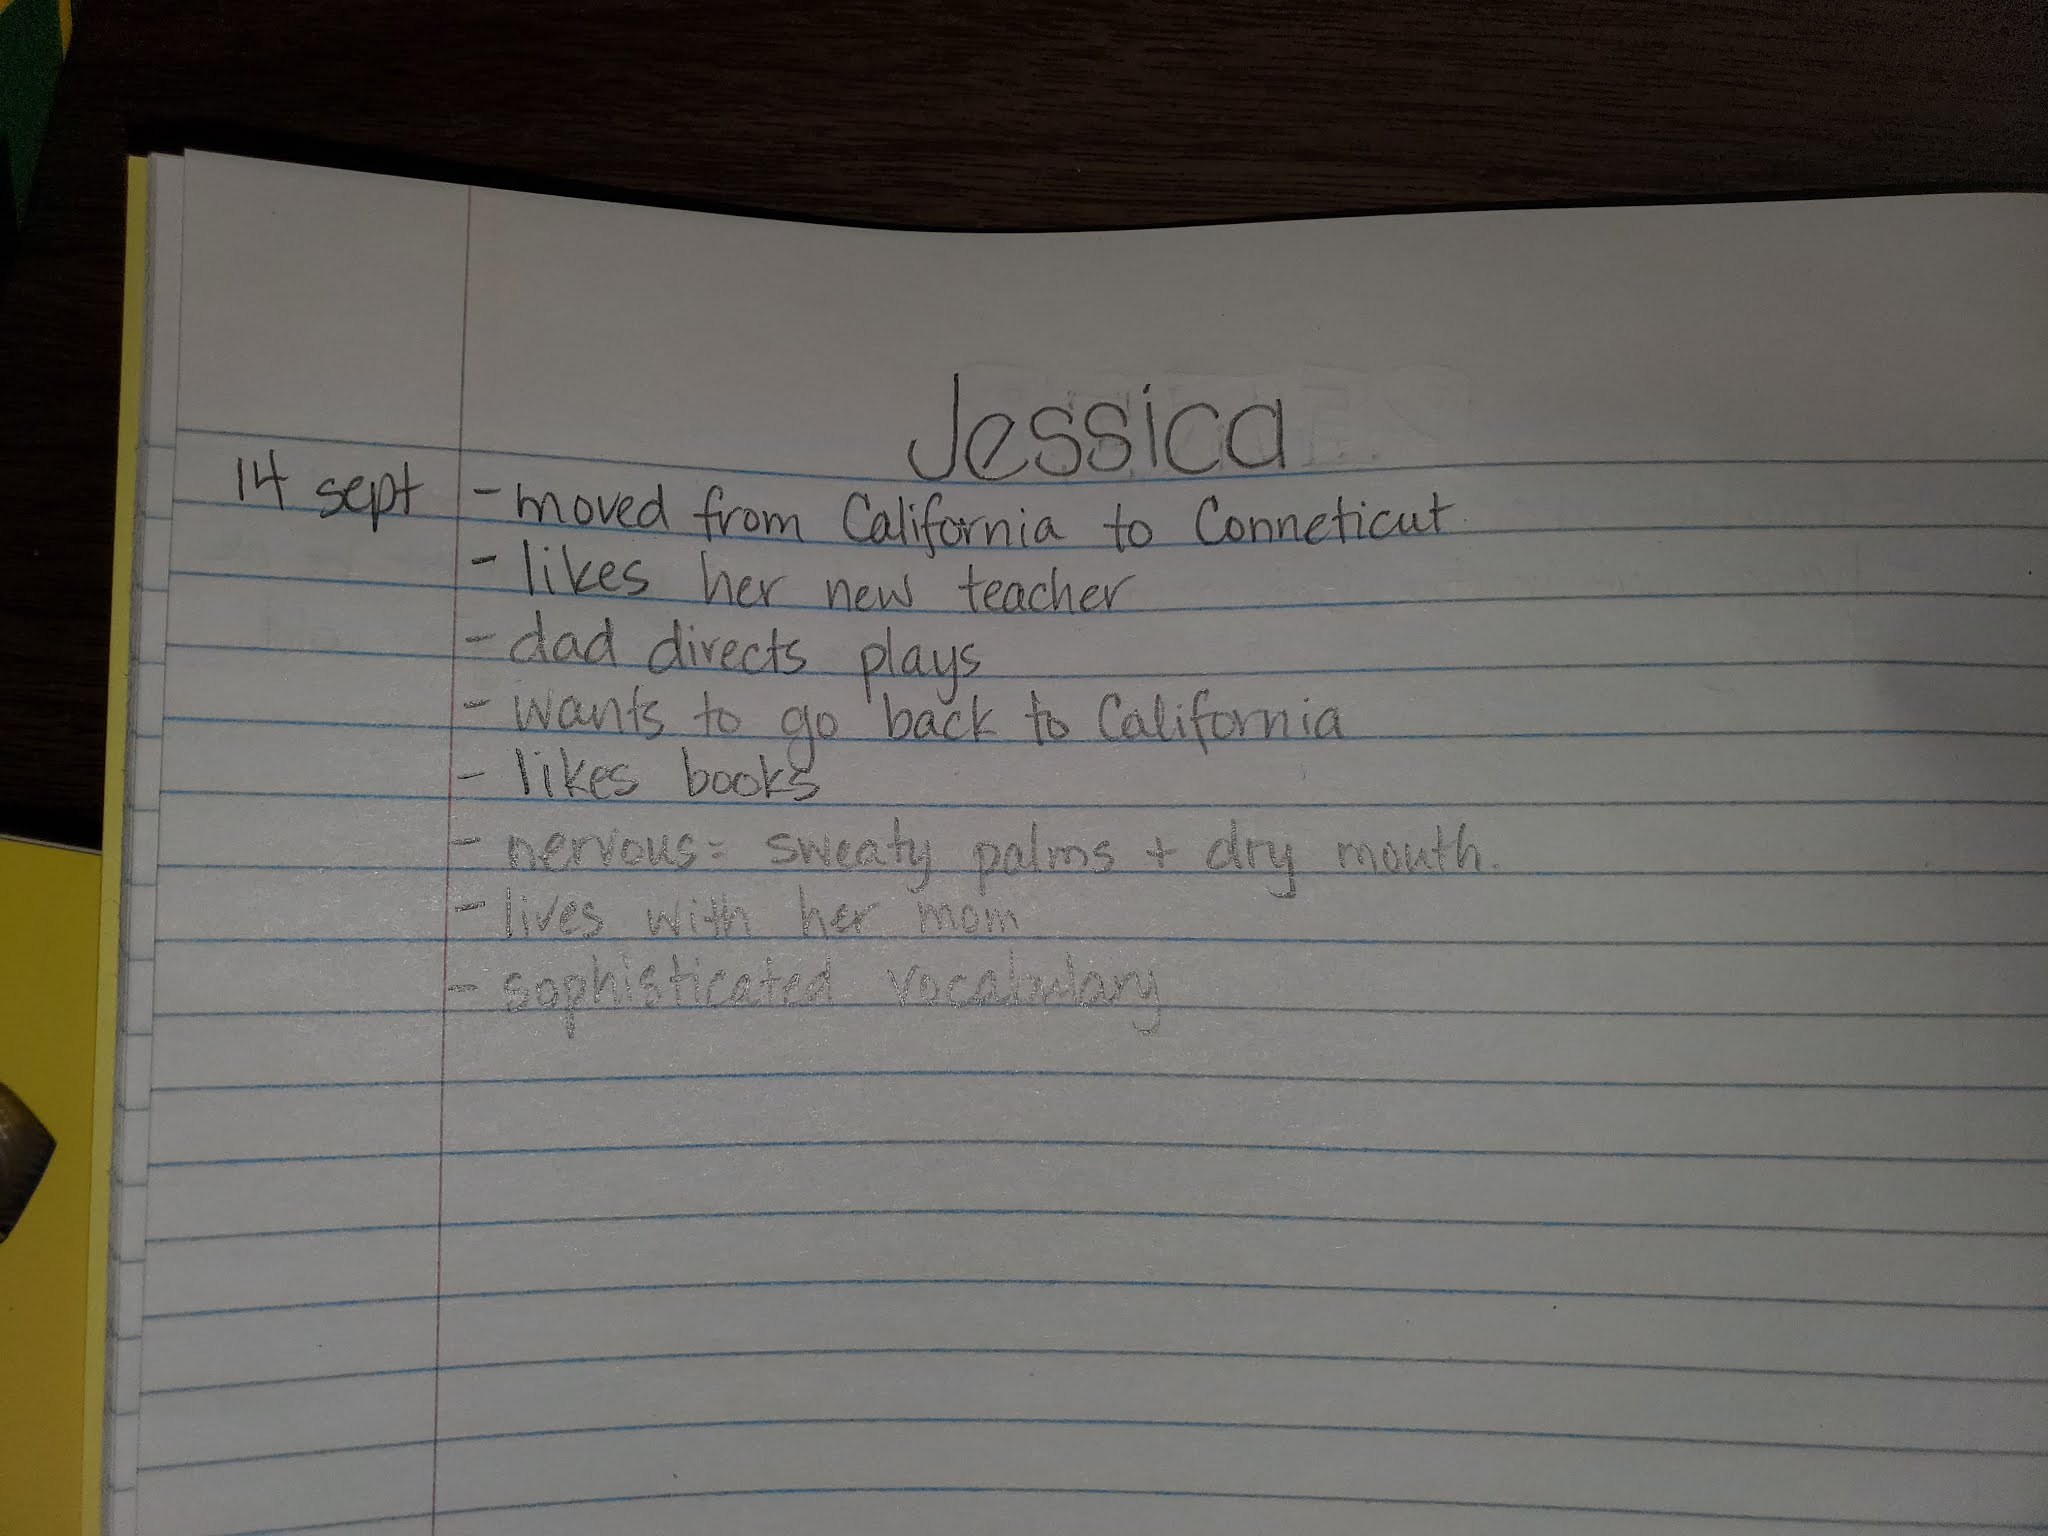 Jessica
14 sept - moved from California to Conneticut
- likes her new teacher
- dad directs plays
- wants to go back to California
- likes books
- nervous = sweaty palms + dry mouth.
- lives with her mom
- sophisticated vocabulary